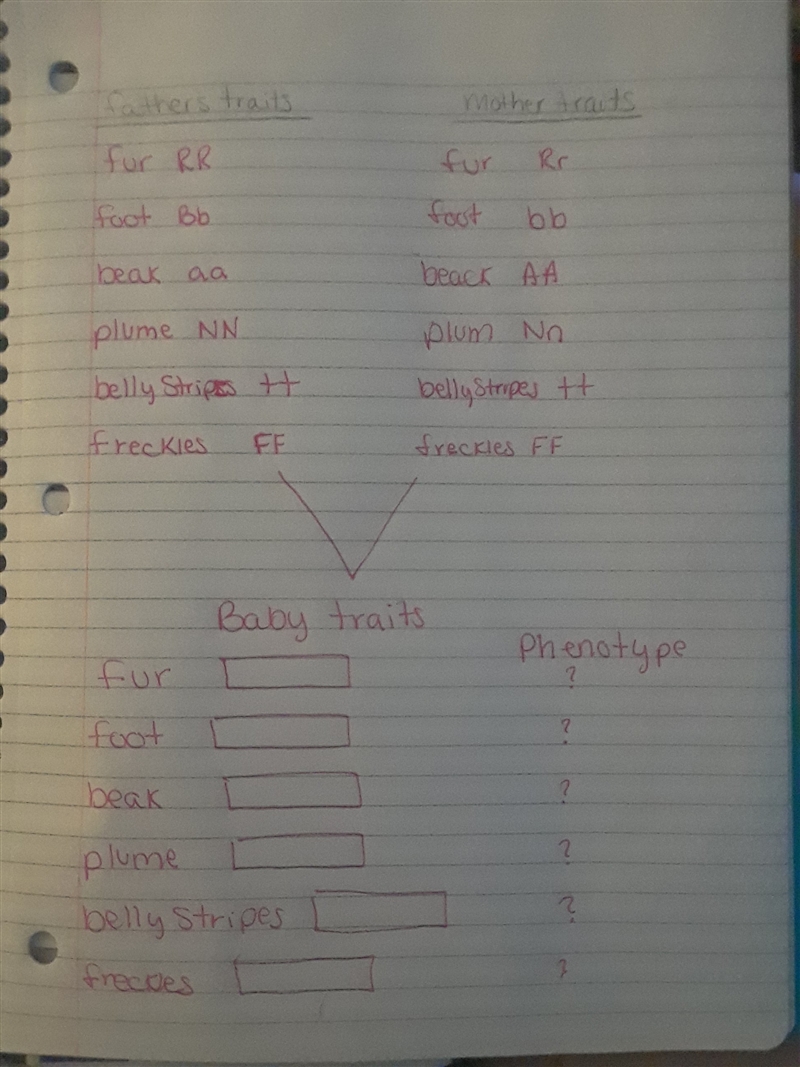 fathers traits    Mother traits
fur RR    fur Rr
foot Bb    foot bb
beak aa    beack AA
plume NN    plum Nn
belly Stripes tt    belly Stripes tt
freckles FF    freckles FF
Baby traits
Phenotype
fur ?
foot ?
beak ?
plume ?
belly Stripes ?
freckles ?